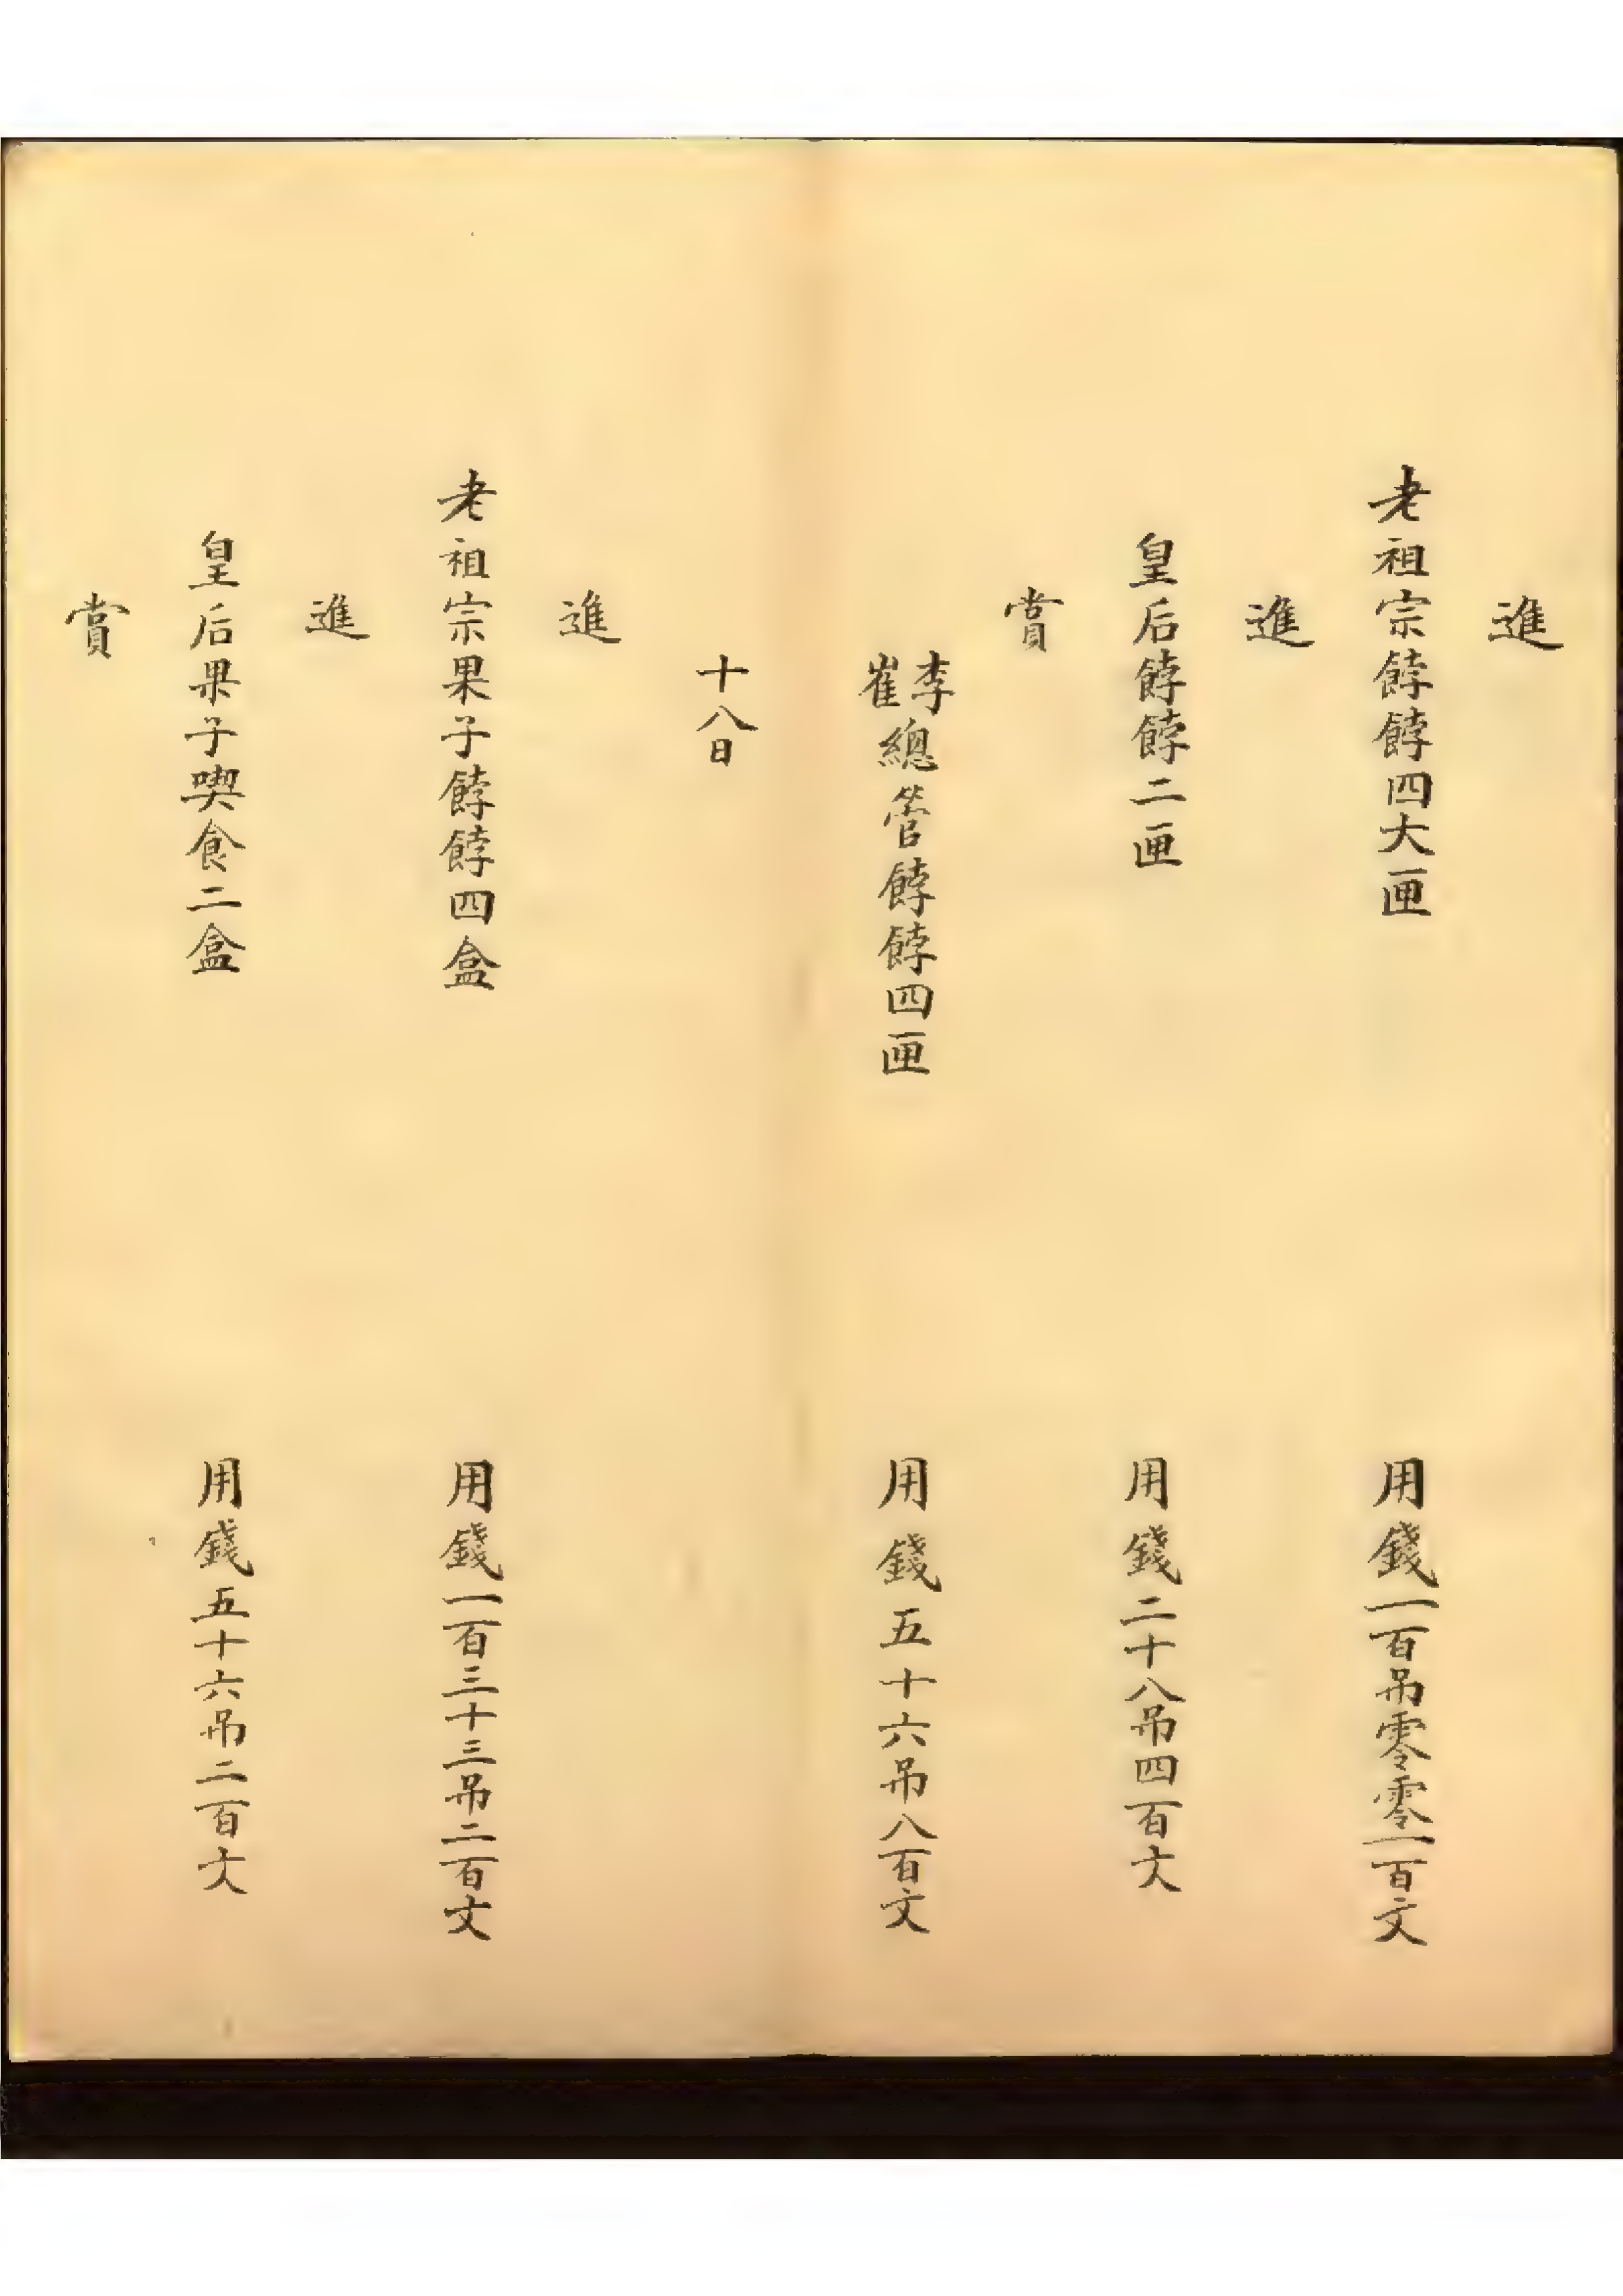 進
老祖宗餑餑四大匣 用錢一百吊零零一百文
進
皇后餑餑二匣 用錢二十八吊四百文
賞
李崔總管餑餑四匣 用錢五十六吊八百文
十八日
進
老祖宗果子餑餑四盒 用錢一百三十三吊二百文
進
皇后果子喫食二盒 用錢五十六吊二百文
賞